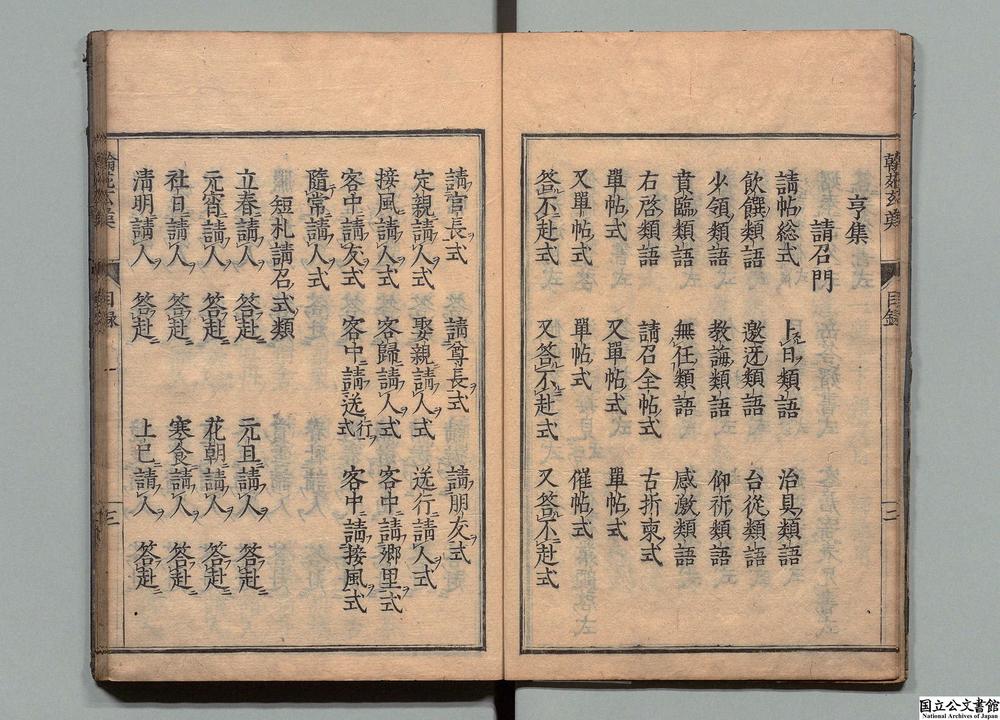 亨集
請召門
請帖総式 上日類語 治具類語
飲饌類語 邀迓類語 台從類語
少領類語 教誨類語 仰祈類語
賁臨類語 無任類語 感激類語
右啓類語 請召全帖式 古折柬式
單帖式 又單帖式 單帖式
又單帖式 單帖式 催帖式
答不赴式 又答不赴式 又答不赴式
目錄
二
請官長式 請尊長式 請朋友式
定親請人式 娶親請人式 送行請人式
接風請人式 客歸請人式 客中請鄉里式
客中請友式 客中請送行式 客中請接風式
隨常請人式
短札請召式類
立春請人 答赴 元旦請人 答赴
元宵請人 答赴 花朝請人 答赴
社日請人 答赴 寒食請人 答赴
清明請人 答赴 上巳請人 答赴
目錄
三
国立公文書館
National Archives of Japan